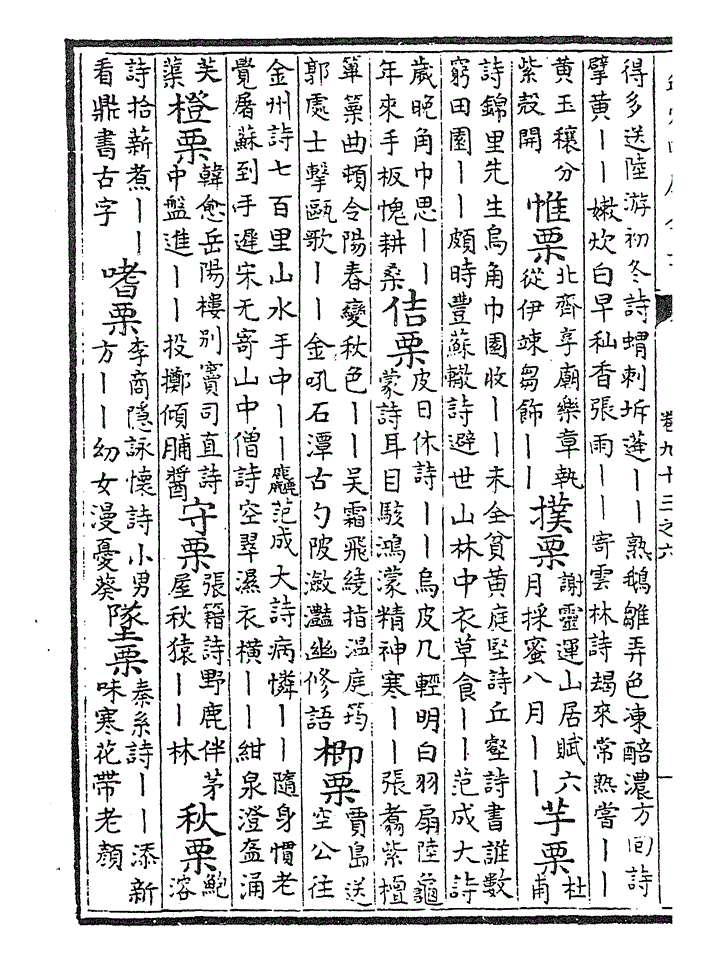 得多送陸游初冬詩蝟刺坼蓬丨丨熟鵝雛弄色凍醅濃方回詩
擘黄丨丨嫩炊白早秈香張雨丨丨寄雲林詩朅來常熟嘗丨丨
黄玉穰分
紫殼開
惟栗
北齊享廟樂章執
從伊竦芻飾丨丨
撲栗
謝靈運山居賦六
月採蜜八月丨丨
芋栗
杜
甫
詩錦里先生烏角巾園收丨丨未全貧黄庭堅詩丘壑詩書誰數
窮田園丨丨頗時豐蘇轍詩避世山林中衣草食丨丨范成大詩
歲晚角巾思丨丨
年來手板愧耕桑
佶栗
皮日休詩丨丨烏皮几輕明白羽扇陸龜
蒙詩耳目駭鴻濛精神寒丨丨張翥紫檀
篳篥曲頓令陽春變秋色丨丨吳霜飛繞指溫庭筠
郭處士擊甌歌丨丨金吼石潭古勺陂瀲灩幽修語
楖栗
賈島送
空公往
金州詩七百里山水手中丨丨麤范成大詩病憐丨丨隨身慣老
覺屠蘇到手遲宋无寄山中僧詩空翠濕衣橫丨丨紺泉澄盋涌
芙
蕖
橙栗
韓愈岳陽樓別竇司直詩
中盤進丨丨投擲傾脯醬
守栗
張籍詩野鹿伴茅
屋秋猿丨丨林
秋栗
鮑
溶
詩拾薪煮丨丨
看鼎書古字
嗜栗
李商隱詠懷詩小男
方丨丨幼女漫憂葵
墜栗
秦系詩丨丨添新
味寒花帶老顏
卷九十三之六